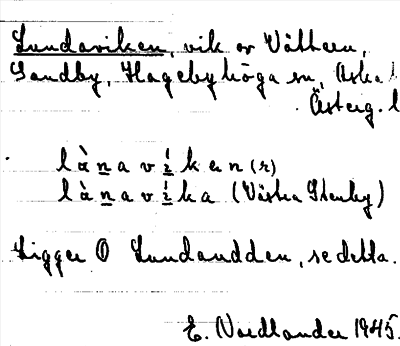 Lundaviken, vik av Vättern,
Sandby, Hagebyhöga sn, Aska
Österg. l
lànavìken (r)
lànavìka (Västra Stenby)
Ligger O Lundaudden, se detta.
E. Nordlander 1945.